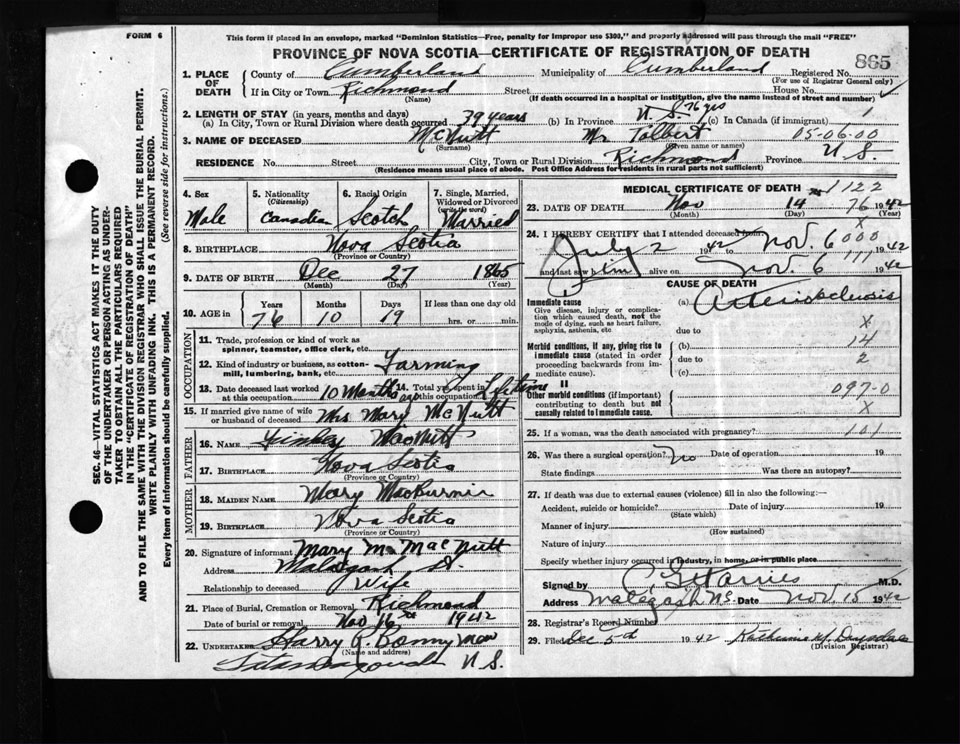 FORM 6
This form if placed in an envelope, marked "Dominion Statistics—Free, penalty for improper use $300," and properly addressed will pass through the mail "FREE"
PROVINCE OF NOVA SCOTIA—CERTIFICATE OF REGISTRATION OF DEATH
865
1. PLACE OF DEATH
County of Cumberland Municipality of Cumberland Registered No.
(For use of Registrar General only)
If in City or Town Richmond Street House No.
(Name) (If death occurred in a hospital or institution, give the name instead of street and number)
2. LENGTH OF STAY (in years, months and days)
(a) In City, Town or Rural Division where death occurred 39 years (b) In Province N.S. 76 yrs (c) In Canada (if immigrant)
3. NAME OF DECEASED McNutt Mr Tolbert 05-06-00
(Surname) (Given name or names)
RESIDENCE No. Street City, Town or Rural Division Richmond Province N.S.
(Residence means usual place of abode. Post Office Address for residents in rural parts not sufficient)
4. Sex Male
5. Nationality (Citizenship) Canadian
6. Racial Origin Scotch
7. Single, Married, Widowed or Divorced (write the word) Married
8. BIRTHPLACE Nova Scotia
(Province or Country)
9. DATE OF BIRTH Dec 27 1865
(Month) (Day) (Year)
10. AGE in Years Months Days If less than one day old
76 10 19 hrs. or min.
11. Trade, profession or kind of work as spinner, teamster, office clerk, etc.
12. Kind of industry or business, as cotton-mill, lumbering, bank, etc. Farming
13. Date deceased last worked at this occupation 10 Months ago
14. Total yrs. spent in this occupation Lifetime
15. If married give name of wife or husband of deceased Mrs Mary McNutt
FATHER
16. NAME MacNutt
17. BIRTHPLACE Nova Scotia
(Province or Country)
MOTHER
18. MAIDEN NAME Mary MacBurnie
19. BIRTHPLACE Nova Scotia
(Province or Country)
20. Signature of informant Mary M MacNutt
Address Malagash
Relationship to deceased Wife
21. Place of Burial, Cremation or Removal Richmond
Date of burial or removal Nov 16th 1942
22. UNDERTAKER Harry R. Bonnyman
(Name and address)
N.S.
MEDICAL CERTIFICATE OF DEATH 1122
23. DATE OF DEATH Nov 14 76 1942
(Month) (Day) (Year)
24. I HEREBY CERTIFY that I attended deceased from
July 2 1942 to Nov. 6 000 1942
and last saw him alive on Nov. 6 111 1942
CAUSE OF DEATH
Immediate cause
Give disease, injury or complication which caused death, not the mode of dying, such as heart failure, asphyxia, asthenia, etc
(a) Arteriosclerosis
due to X
Morbid conditions, if any, giving rise to immediate cause (stated in order proceeding backwards from immediate cause).
(b) 14
due to 2
(c)
II
Other morbid conditions (if important) contributing to death but not causally related to immediate cause.
097-0
X
25. If a woman, was the death associated with pregnancy? 101
26. Was there a surgical operation? No Date of operation 19
State findings Was there an autopsy?
27. If death was due to external causes (violence) fill in also the following:—
Accident, suicide or homicide? Date of injury 19
(State which)
Manner of injury
(How sustained)
Nature of injury
Specify whether injury occurred in industry, in home, or in public place
Signed by Harries M.D.
Address Malagash NS. Date Nov. 15 1942
28. Registrar's Record Number
29. Filed Dec 5th 1942
(Division Registrar)
SEC. 46—VITAL STATISTICS ACT MAKES IT THE DUTY
OF THE UNDERTAKER OR PERSON ACTING AS UNDER-
TAKER TO OBTAIN ALL THE PARTICULARS REQUIRED
IN THE "CERTIFICATE OF REGISTRATION OF DEATH"
AND TO FILE THE SAME WITH THE DIVISION REGISTRAR WHO SHALL ISSUE THE BURIAL PERMIT.
WRITE PLAINLY WITH UNFADING INK. THIS IS A PERMANENT RECORD.
Every item of information should be carefully supplied. (See reverse side for instructions.)